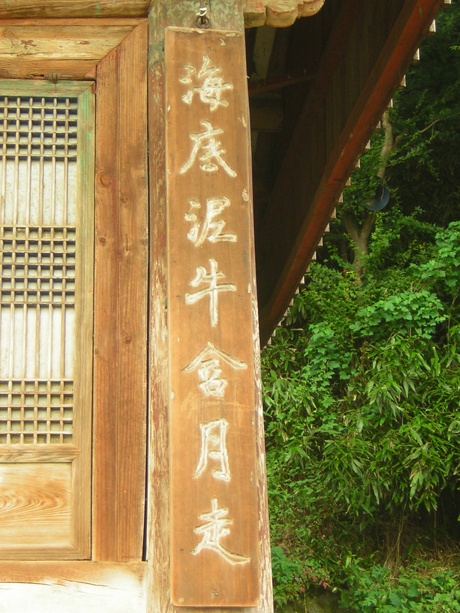 海底泥牛含月走